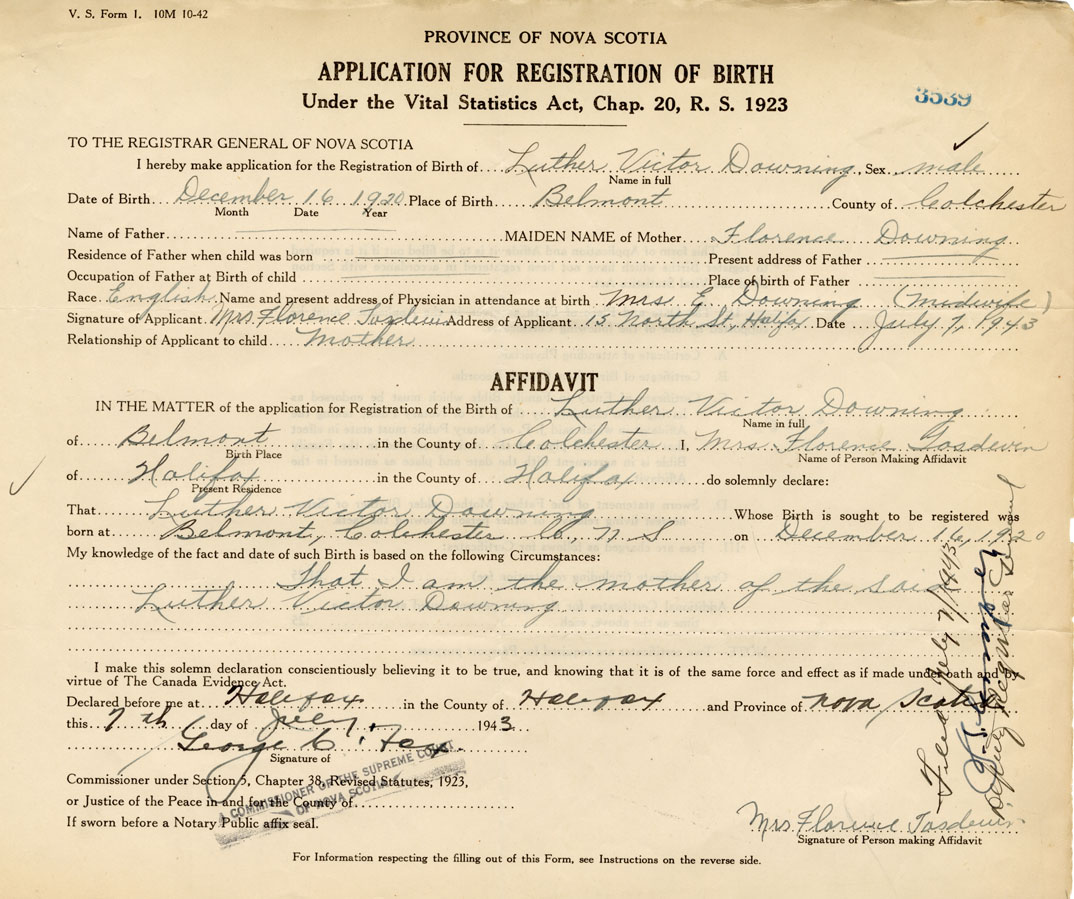 V. S. Form 1. 10M 10-42
PROVINCE OF NOVA SCOTIA
APPLICATION FOR REGISTRATION OF BIRTH
Under the Vital Statistics Act, Chap. 20, R. S. 1923
3539
TO THE REGISTRAR GENERAL OF NOVA SCOTIA
I hereby make application for the Registration of Birth of Luther Victor Downing, Sex male
Name in full
Date of Birth December 16 1920 Place of Birth Belmont County of Colchester
Month Date Year
Name of Father MAIDEN NAME of Mother Florence Downing
Residence of Father when child was born Present address of Father
Occupation of Father at Birth of child Place of birth of Father
Race English Name and present address of Physician in attendance at birth Mrs E. Downing (Midwife)
Signature of Applicant Mrs Florence Address of Applicant 15 North St, Halifax Date July 7, 1943
Relationship of Applicant to child Mother
AFFIDAVIT
IN THE MATTER of the application for Registration of the Birth of Luther Victor Downing
Name in full
of Belmont in the County of Colchester I, Mrs. Florence
Birth Place Name of Person Making Affidavit
of Halifax in the County of Halifax do solemnly declare:
Present Residence
That Luther Victor Downing Whose Birth is sought to be registered was
born at Belmont, Colchester Co, N S on December 16, 1920
My knowledge of the fact and date of such Birth is based on the following Circumstances:
That I am the mother of the said
Luther Victor Downing
I make this solemn declaration conscientiously believing it to be true, and knowing that it is of the same force and effect as if made under oath and by
virtue of The Canada Evidence Act.
Declared before me at Halifax in the County of Halifax and Province of Nova Scotia
this 7th day of July 1943
George C. Fox
Signature of
Commissioner under Section 5, Chapter 38, Revised Statutes, 1923,
or Justice of the Peace in and for the County of
If sworn before a Notary Public affix seal.
A COMMISSIONER OF THE SUPREME COURT
OF NOVA SCOTIA
Mrs Florence
Signature of Person making Affidavit
For Information respecting the filling out of this Form, see Instructions on the reverse side.
Filed July 7/1943
Deputy Registrar General